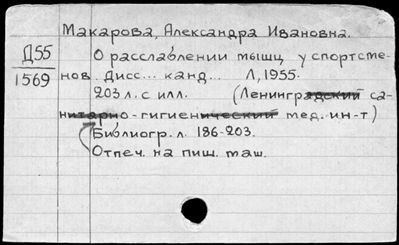 Макарова, Александра Ивановна.
Д55
1569
О расслаблении мышц у спортсме-
нов. Дисс... канд... Л, 1955.
203 л. с илл. (Ленинградский са-
нитарно-гигиенический мед. ин-т)
Библиогр. л. 186-203.
Отпеч. на пиш. маш.